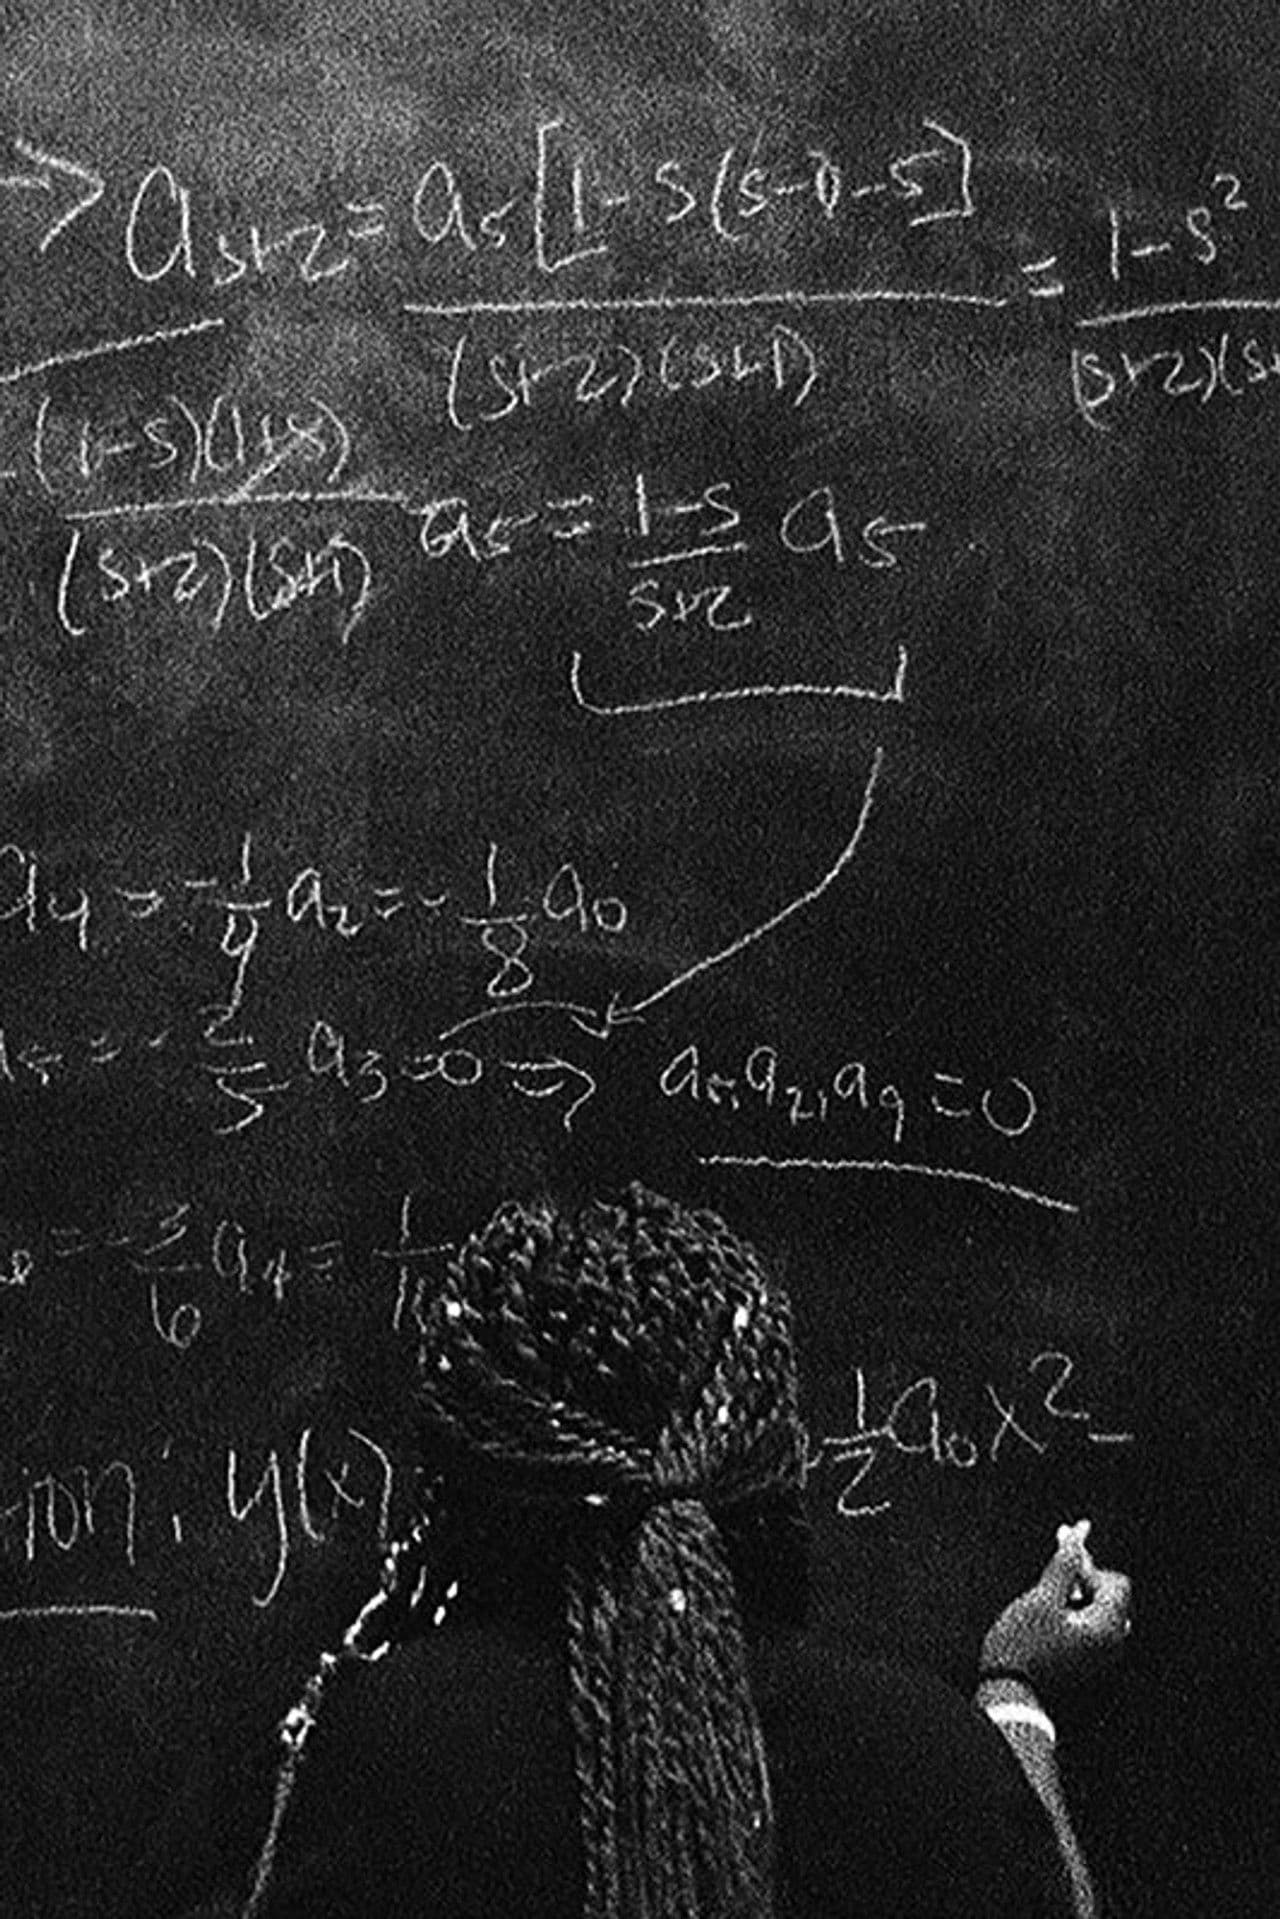 → a_{s+2} = a_s[1-s(s-1)-s] / (s+2)(s+1) = 1-s² / (s+2)(s
(1-s)(1+s) / (s+2)(s+1) a_s = 1-s / s+2 a_s
a_4 = -1/4 a_2 = -1/8 a_0
= -2/5 a_3 = 0 ⇒ a_5, a_7, a_9 = 0
= -3/6 a_4 = 1/
tion: y(x) 1/2 a_0 x² -